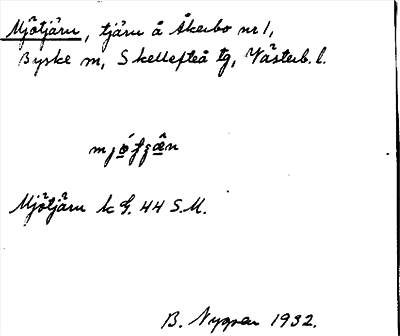 Mjötjärn, tjärn å Åkerbo nr 1,
Byske sn, Skellefteå tg, Västerb. l.
Mjötjärn k G. 44 S.M.
B. Nygren 1932.